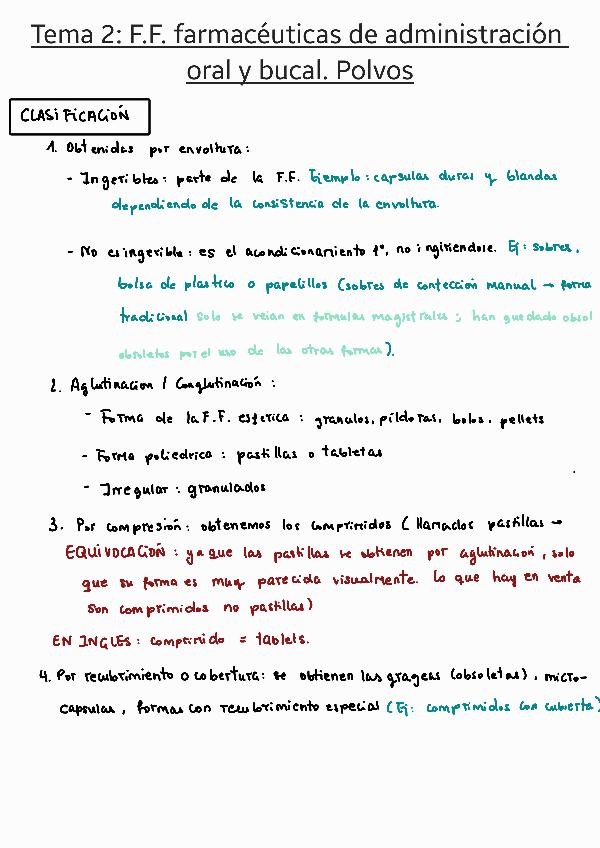 Tema 2: F.F. farmacéuticas de administración
oral y bucal. Polvos
CLASIFICACIÓN
1. Obtenidas por envoltura:
- Ingeribles: parte de la F.F. Ejemplo: capsulas duras y blandas
dependiendo de la consistencia de la envoltura.
- No es ingerible: es el acondicionamiento 1º, no ingiriendose. Ej: sobres,
bolsa de plastico o papelillos (sobres de confección manual → forma
tradicional solo se veian en formulas magistrales; han quedado obsol
obsoletos por el uso de las otras formas).
2. Aglutinacion / Conglutinación:
- Forma de la F.F. esferica: granulos, píldoras, bolos, pellets
- Forma poliedrica: pastillas o tabletas
- Irregular: granulados
3. Por compresión: obtenemos los comprimidos (llamados pastillas →
EQUIVOCACIÓN: ya que las pastillas se obtienen por aglutinación, solo
que su forma es muy parecida visualmente. Lo que hay en venta
son comprimidos no pastillas)
EN INGLES: comprimido = tablets.
4. Por recubrimiento o cobertura: se obtienen las grageas (obsoletas), micro-
capsulas, formas con recubrimiento especial (Ej: comprimidos con cubierta)